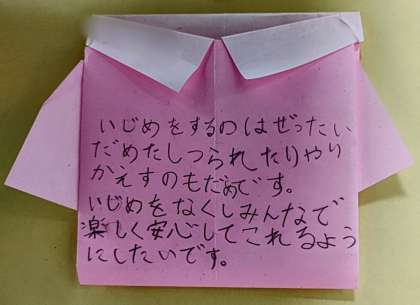 いじめをするのはぜったい
だめだしつられたりやり
かえすのもだめです。
いじめをなくしみんなで
楽しく安心してこれるよう
にしたいです。